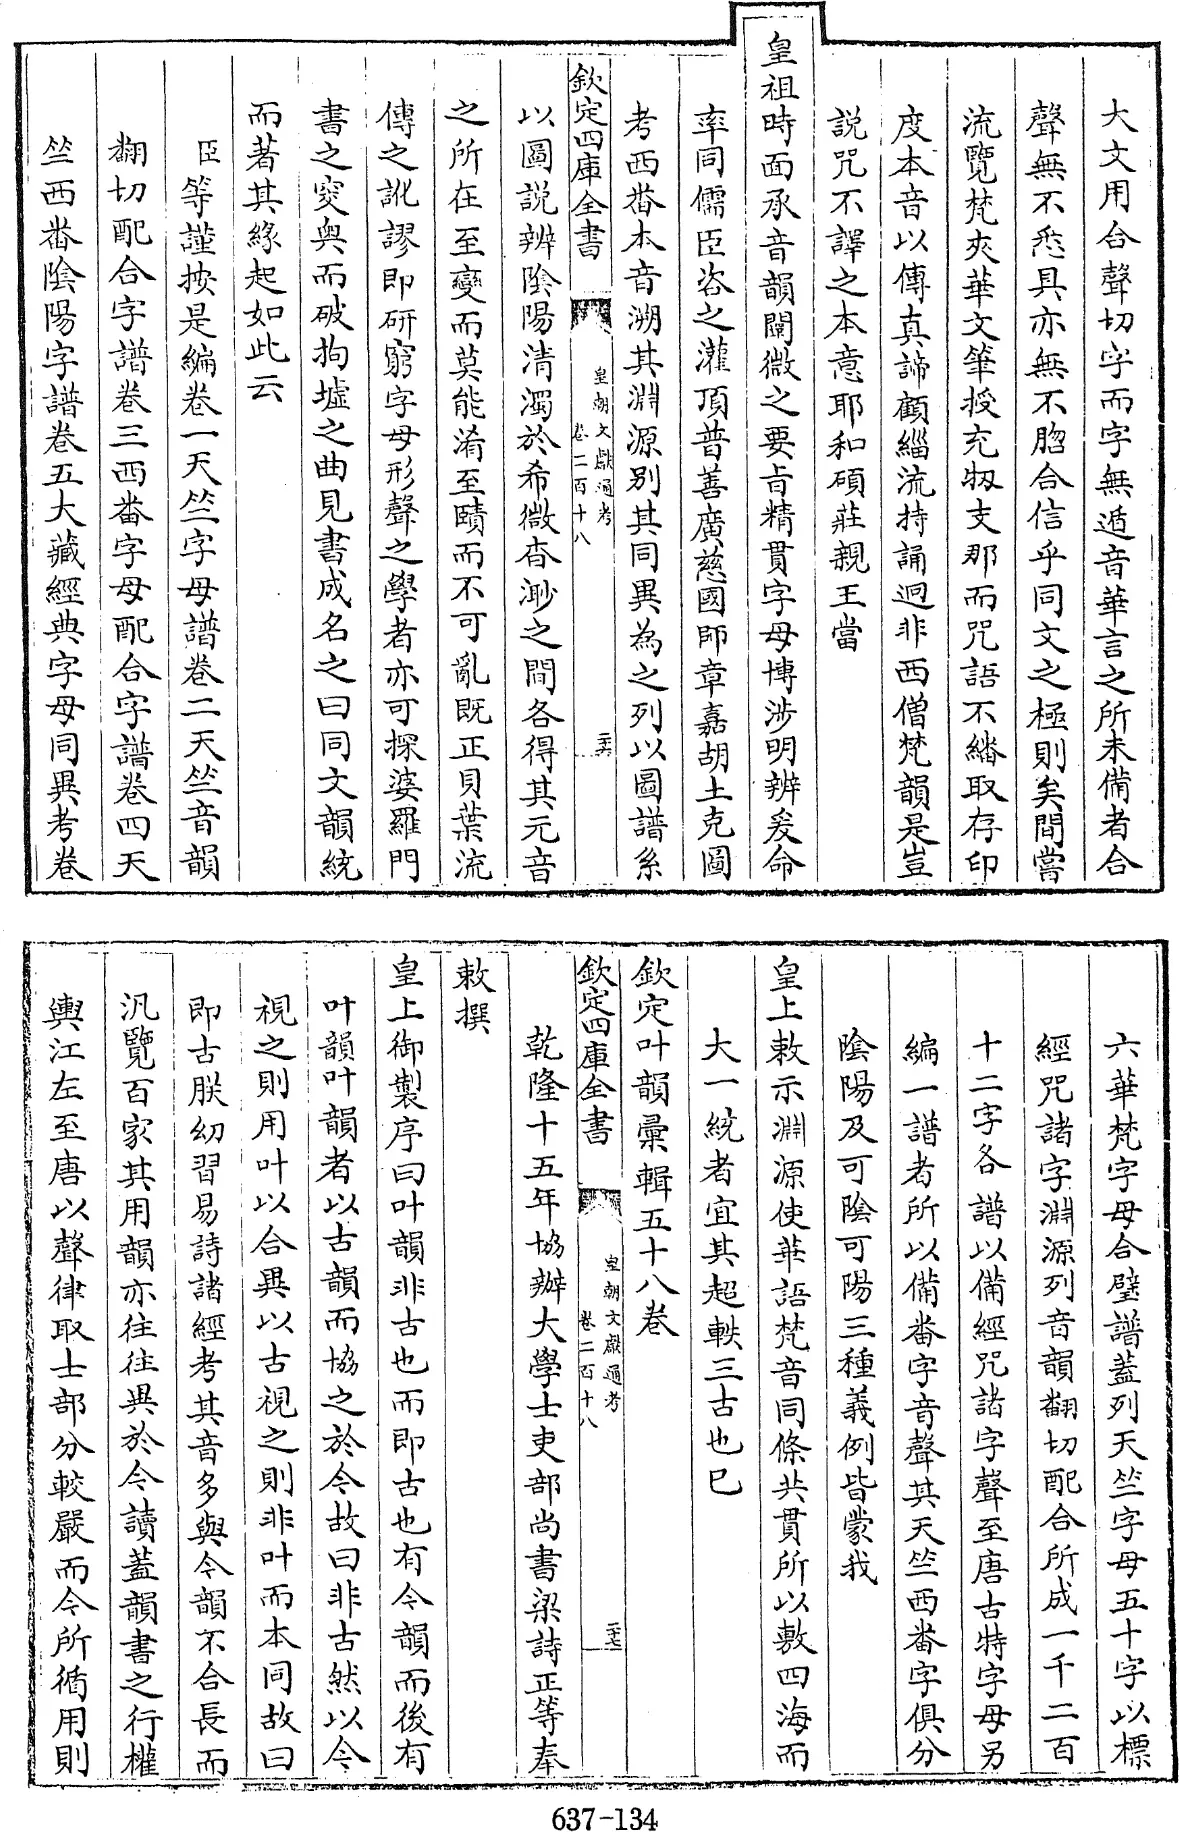 大文用合聲切字而字無遁音華言之所未備者合
聲無不悉具亦無不脗合信乎同文之極則矣間嘗
流覽梵夾華文筆授充牣支那而咒語不繙取存印
度本音以傳真諦顧緇流持誦迥非西僧梵韻是豈
説咒不譯之本意耶和碩莊親王當
皇祖時面承音韻闡微之要旨精貫字母博涉明辨爰命
率同儒臣咨之灌頂普善廣慈國師章嘉胡土克圖
考西番本音溯其淵源别其同異為之列以圖譜系
欽定四庫全書
皇朝文獻通考
卷二百十八
二十六
以圖説辨陰陽清濁於希微杳渺之間各得其元音
之所在至變而莫能淆至賾而不可亂既正貝葉流
傳之訛謬即研窮字母形聲之學者亦可探婆羅門
書之突奥而破拘墟之曲見書成名之曰同文韻統
而著其緣起如此云
臣等謹按是編卷一天竺字母譜卷二天竺音韻
翻切配合字譜卷三西番字母配合字譜卷四天
竺西番陰陽字譜卷五大藏經典字母同異考卷
六華梵字母合璧譜蓋列天竺字母五十字以標
經咒諸字淵源列音韻翻切配合所成一千二百
十二字各譜以備經咒諸字聲至唐古特字母另
編一譜者所以備番字音聲其天竺西番字俱分
陰陽及可陰可陽三種義例皆蒙我
皇上敕示淵源使華語梵音同條共貫所以敷四海而
大一統者宜其超軼三古也已
欽定叶韻彙輯五十八卷
欽定四庫全書
皇朝文獻通考
卷二百十八
二十七
乾隆十五年協辦大學士吏部尚書梁詩正等奉
敕撰
皇上御製序曰叶韻非古也而即古也有今韻而後有
叶韻叶韻者以古韻而協之於今故曰非古然以今
視之則用叶以合異以古視之則非叶而本同故曰
即古朕幼習易詩諸經考其音多與今韻不合長而
汎覽百家其用韻亦往往異於今讀蓋韻書之行權
輿江左至唐以聲律取士部分較嚴而今所循用則
637-134